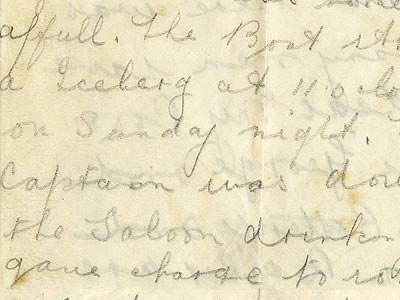 affull. The Boat st
a Iceberg at 11 oclo
on Sunday night.
Captain was dow
the Saloon drinkin
gave charge to